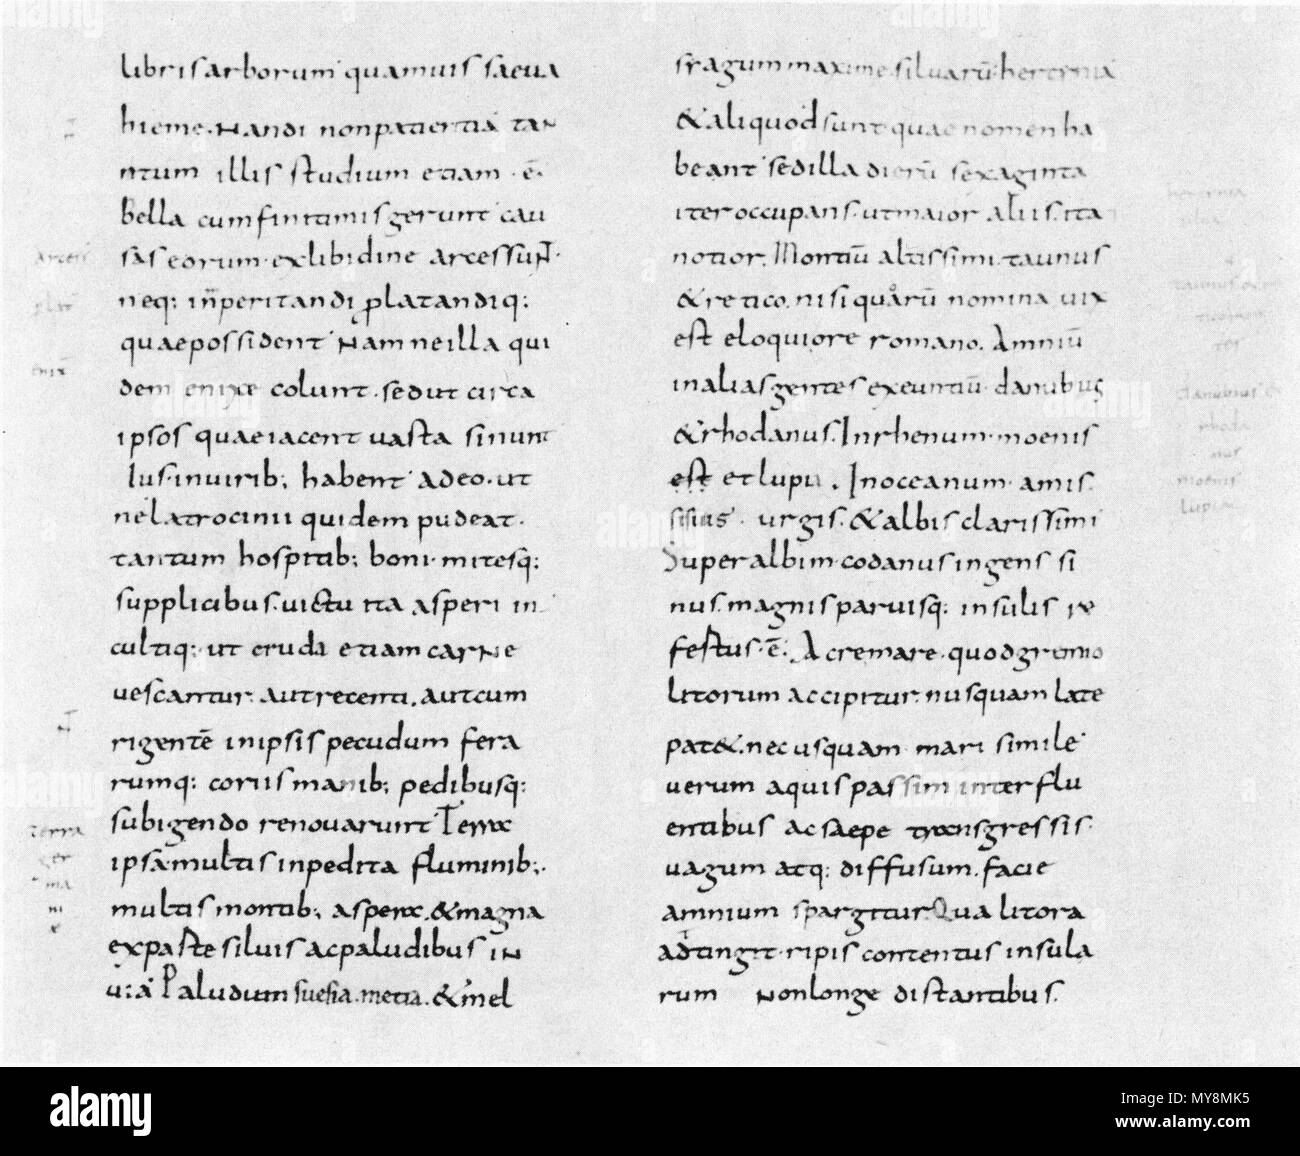 libris arborum quamuis saeua
hieme. Nandi non patientia tan
ntum illis studium etiam. ē.
Bella cum finitimis gerunt cau
sas eorum. ex libidine arcessuN̄.
neq: inperitandi prolatandiq:
quae possident Nam ne illa qui
dem enixe colunt. sed ut circa
ipsos quae iacent uasta sinunt
Ius. in uirib; habent adeo. ut
ne latrocinii quidem pudeat.
tantum hospitib; boni. mitesq:
supplicibus. uictu ita asperi in
cultiq: ut cruda etiam carNe
uescantur. aut recenti. aut cum
rigentē in ipsis pecudum fera
rumq: coriis manib; pedibusq:
subigendo renouarunt Terra
ipsa multis inpedita fluminib;.
multis montib; aspera. & magna
ex paste siluis ac paludibus iN
u:a Paludum suesia. metia. & mel
arcess
plat
enix
terra
ger
ma
ni
e
sragum maxime. siluarū. hercynia
& aliquod sunt quae nomen ha
beant sed illa dierū sexaginta
iter occupans. ut maior aliis. ita
notior. Montiū altissimi. taunus
& retico. nisi quarū nomina uix
est eloquiore romano. Amniū
in alias gentes exeuntiū. danubus
& rhodanus. In rhenum. moenis
est et lupi. In oceanum. amis.
sisius. urgis. & albis clarissimi
Super albim. codanus ingens si
nus. magnis paruisq: insulis re
festus. ē. Ac re mare. quod gremio
litorum accipitur. nusquam late
pat&. nec usquam mari simile
uerum aquis passim interflu
entibus ac saepe transgressis.
uagum atq: diffusum. facie
amnium spargitur. Qua litora
adtingit. ripis contentus insula
rum Non longe distantibus.
hercynia
silua
danubius
rhoda
nus
moenis
lupia
alamy
Image ID: MY8MK5
www.alamy.com